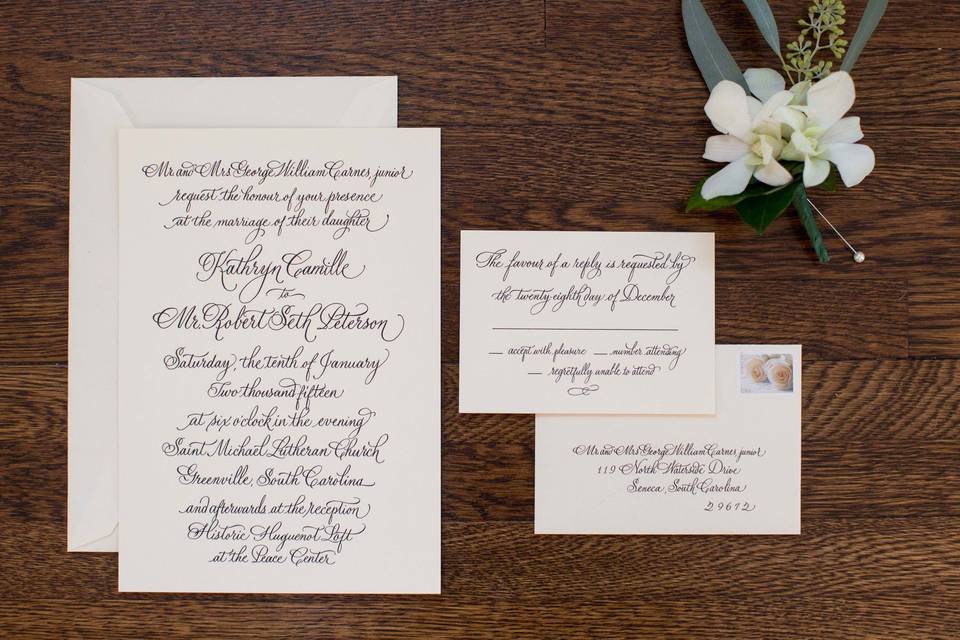 Mr. and Mrs. George William Carnes, junior
request the honour of your presence
at the marriage of their daughter
Kathryn Camille
to
Mr. Robert Seth Peterson
Saturday, the tenth of January
Two thousand fifteen
at six o'clock in the evening
Saint Michael Lutheran Church
Greenville, South Carolina
and afterwards at the reception
Historic Huguenot Loft
at the Peace Center
The favour of a reply is requested by
the twenty-eighth day of December
accept with pleasure number attending
regretfully unable to attend
Mr. and Mrs. George William Carnes, junior
119 North Waterside Drive
Seneca, South Carolina
29672